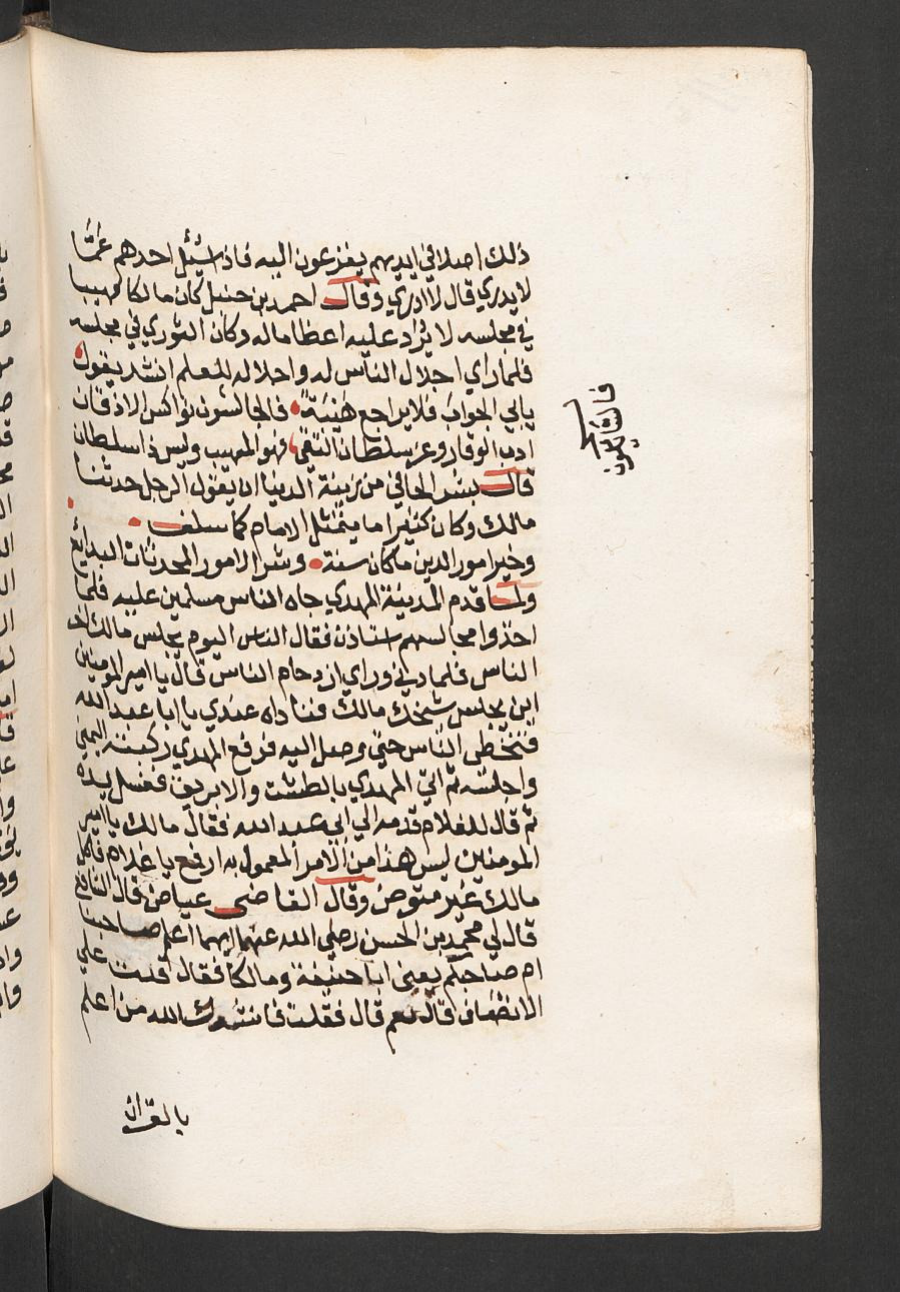 ذلك اصلا في ايديهم يفزعون اليه فاذا سئل احدهم عمّا
لا يدري قال لا ادري وقال احمد بن حنبل كان مالكا مهيبا
في مجلسه لا يرد عليه اعظاما له وكان الثوري في مجلسه
فلما راي اجلال الناس له واجلاله للعلم انشد يقول
يابي الجواب فلا يراجع هيبة فالجالسون نواكس الاذقان
ادب الوقار وعز سلطان التقي فهو المهيب وليس ذا سلطان
قال بشر الحافي من زينة الدنيا ان يقول الرجل حدثنا
مالك وكان كثيرا ما يتمثل الامام كما سلف
وخير امور الدين ما كان سنة وشر الامور المحدثات البدايع
ولما قدم المدينة المهدي جاه الناس مسلمين عليه فلما
اخذوا مجالسهم استاذن فقال الناس اليوم يجلس مالك اخر
الناس فلما دني وراي ازدحام الناس قال يا امير المومنين
اين يجلس شيخك مالك فناداه عندي يا ابا عبد الله
فتخطي الناس حتي وصل اليه فرفع المهدي ركبته اليمني
واجلسه ثم اتي المهدي بالطشت والابريق فغسل يده
ثم قال للغلام قدمه الي ابي عبد الله فقال مالك يا امير
المومنين ليس هذا من الامر المعمول به ارفع يا غلام فاكل
مالك غير متوض وقال القاضي عياض قال الشافعي
قال لي محمد بن الحسن رضي الله عنهما ايهما اعلم صاحبنا
ام صاحبكم يعني ابا حنيفة ومالكا فقال قلت علي
الانصاف قال نعم قال فقلت فانشدك الله من اعلم
بالقران